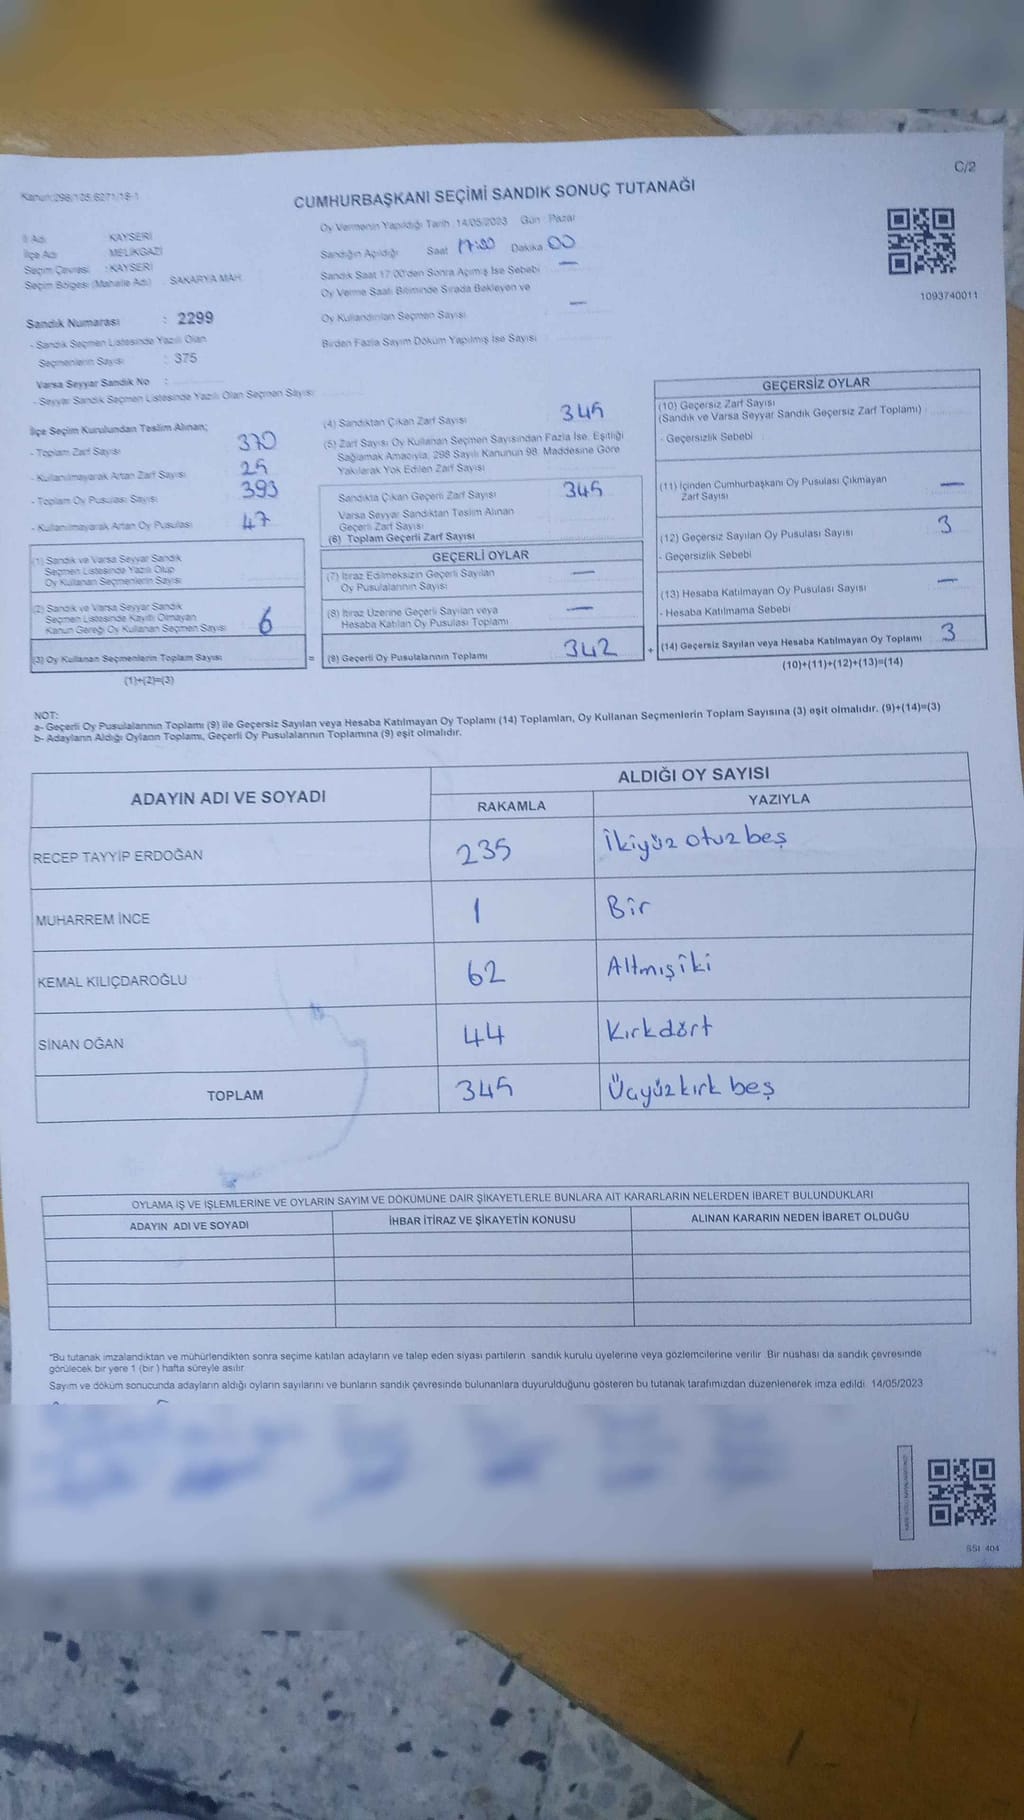 C/2
Kanun:298/105,6271/18-1
CUMHURBAŞKANI SEÇİMİ SANDIK SONUÇ TUTANAĞI
İl Adı : KAYSERİ
İlçe Adı : MELİKGAZİ
Seçim Çevresi : KAYSERİ
Seçim Bölgesi (Mahalle Adı) : SAKARYA MAH.
Oy Vermenin Yapıldığı Tarih : 14/05/2023 Gün : Pazar
Sandığın Açıldığı Saat 17:00 Dakika 00
Sandık Saat 17:00'den Sonra Açımış İse Sebebi : —
Oy Verme Saati Bitiminde Sırada Bekleyen ve
Oy Kullandırılan Seçmen Sayısı : —
Birden Fazla Sayım Döküm Yapılmış İse Sayısı :
1093740011
Sandık Numarası : 2299
- Sandık Seçmen Listesinde Yazılı Olan
Seçmenlerin Sayısı : 375
Varsa Seyyar Sandık No :
- Seyyar Sandık Seçmen Listesinde Yazılı Olan Seçmen Sayısı:
İlçe Seçim Kurulundan Teslim Alınan;
- Toplam Zarf Sayısı 370
- Kullanılmayarak Artan Zarf Sayısı 25
- Toplam Oy Pusulası Sayısı 393
- Kullanılmayarak Artan Oy Pusulası 47
(1) Sandık ve Varsa Seyyar Sandık
Seçmen Listesinde Yazılı Olup
Oy Kullanan Seçmenlerin Sayısı
(2) Sandık ve Varsa Seyyar Sandık
Seçmen Listesinde Kayıtlı Olmayan
Kanun Gereği Oy Kullanan Seçmen Sayısı 6
(3) Oy Kullanan Seçmenlerin Toplam Sayısı =
(1)+(2)=(3)
(4) Sandıktan Çıkan Zarf Sayısı 345
(5) Zarf Sayısı Oy Kullanan Seçmen Sayısından Fazla İse, Eşitliği
Sağlamak Amacıyla, 298 Sayılı Kanunun 98. Maddesine Göre
Yakılarak Yok Edilen Zarf Sayısı
Sandıkta Çıkan Geçerli Zarf Sayısı 345
Varsa Seyyar Sandıktan Teslim Alınan
Geçerli Zarf Sayısı
(6) Toplam Geçerli Zarf Sayısı
GEÇERLİ OYLAR
(7) İtiraz Edilmeksizin Geçerli Sayılan
Oy Pusulalarının Sayısı —
(8) İtiraz Üzerine Geçerli Sayılan veya
Hesaba Katılan Oy Pusulası Toplamı —
(9) Geçerli Oy Pusulalarının Toplamı 342 +
GEÇERSİZ OYLAR
(10) Geçersiz Zarf Sayısı
(Sandık ve Varsa Seyyar Sandık Geçersiz Zarf Toplamı)
- Geçersizlik Sebebi
(11) İçinden Cumhurbaşkanı Oy Pusulası Çıkmayan
Zarf Sayısı —
(12) Geçersiz Sayılan Oy Pusulası Sayısı 3
- Geçersizlik Sebebi
(13) Hesaba Katılmayan Oy Pusulası Sayısı —
- Hesaba Katılmama Sebebi
(14) Geçersiz Sayılan veya Hesaba Katılmayan Oy Toplamı 3
(10)+(11)+(12)+(13)=(14)
NOT:
a- Geçerli Oy Pusulalarının Toplamı (9) ile Geçersiz Sayılan veya Hesaba Katılmayan Oy Toplamı (14) Toplamları, Oy Kullanan Seçmenlerin Toplam Sayısına (3) eşit olmalıdır. (9)+(14)=(3)
b- Adayların Aldığı Oyların Toplamı, Geçerli Oy Pusulalarının Toplamına (9) eşit olmalıdır.
ADAYIN ADI VE SOYADI
ALDIĞI OY SAYISI
RAKAMLA YAZIYLA
RECEP TAYYİP ERDOĞAN 235 İkiyüz otuz beş
MUHARREM İNCE 1 Bir
KEMAL KILIÇDAROĞLU 62 Altmış iki
SİNAN OĞAN 44 Kırkdört
TOPLAM 345 Üçyüz kırk beş
OYLAMA İŞ VE İŞLEMLERİNE VE OYLARIN SAYIM VE DÖKÜMÜNE DAİR ŞİKAYETLERLE BUNLARA AİT KARARLARIN NELERDEN İBARET BULUNDUKLARI
ADAYIN ADI VE SOYADI İHBAR İTİRAZ VE ŞİKAYETİN KONUSU ALINAN KARARIN NEDEN İBARET OLDUĞU
*Bu tutanak imzalandıktan ve mühürlendikten sonra seçime katılan adayların ve talep eden siyasi partilerin sandık kurulu üyelerine veya gözlemcilerine verilir. Bir nüshası da sandık çevresinde
görülecek bir yere 1 (bir ) hafta süreyle asılır.
Sayım ve döküm sonucunda adayların aldığı oyların sayılarını ve bunların sandık çevresinde bulunanlara duyurulduğunu gösteren bu tutanak tarafımızdan düzenlenerek imza edildi. 14/05/2023
SSI 404